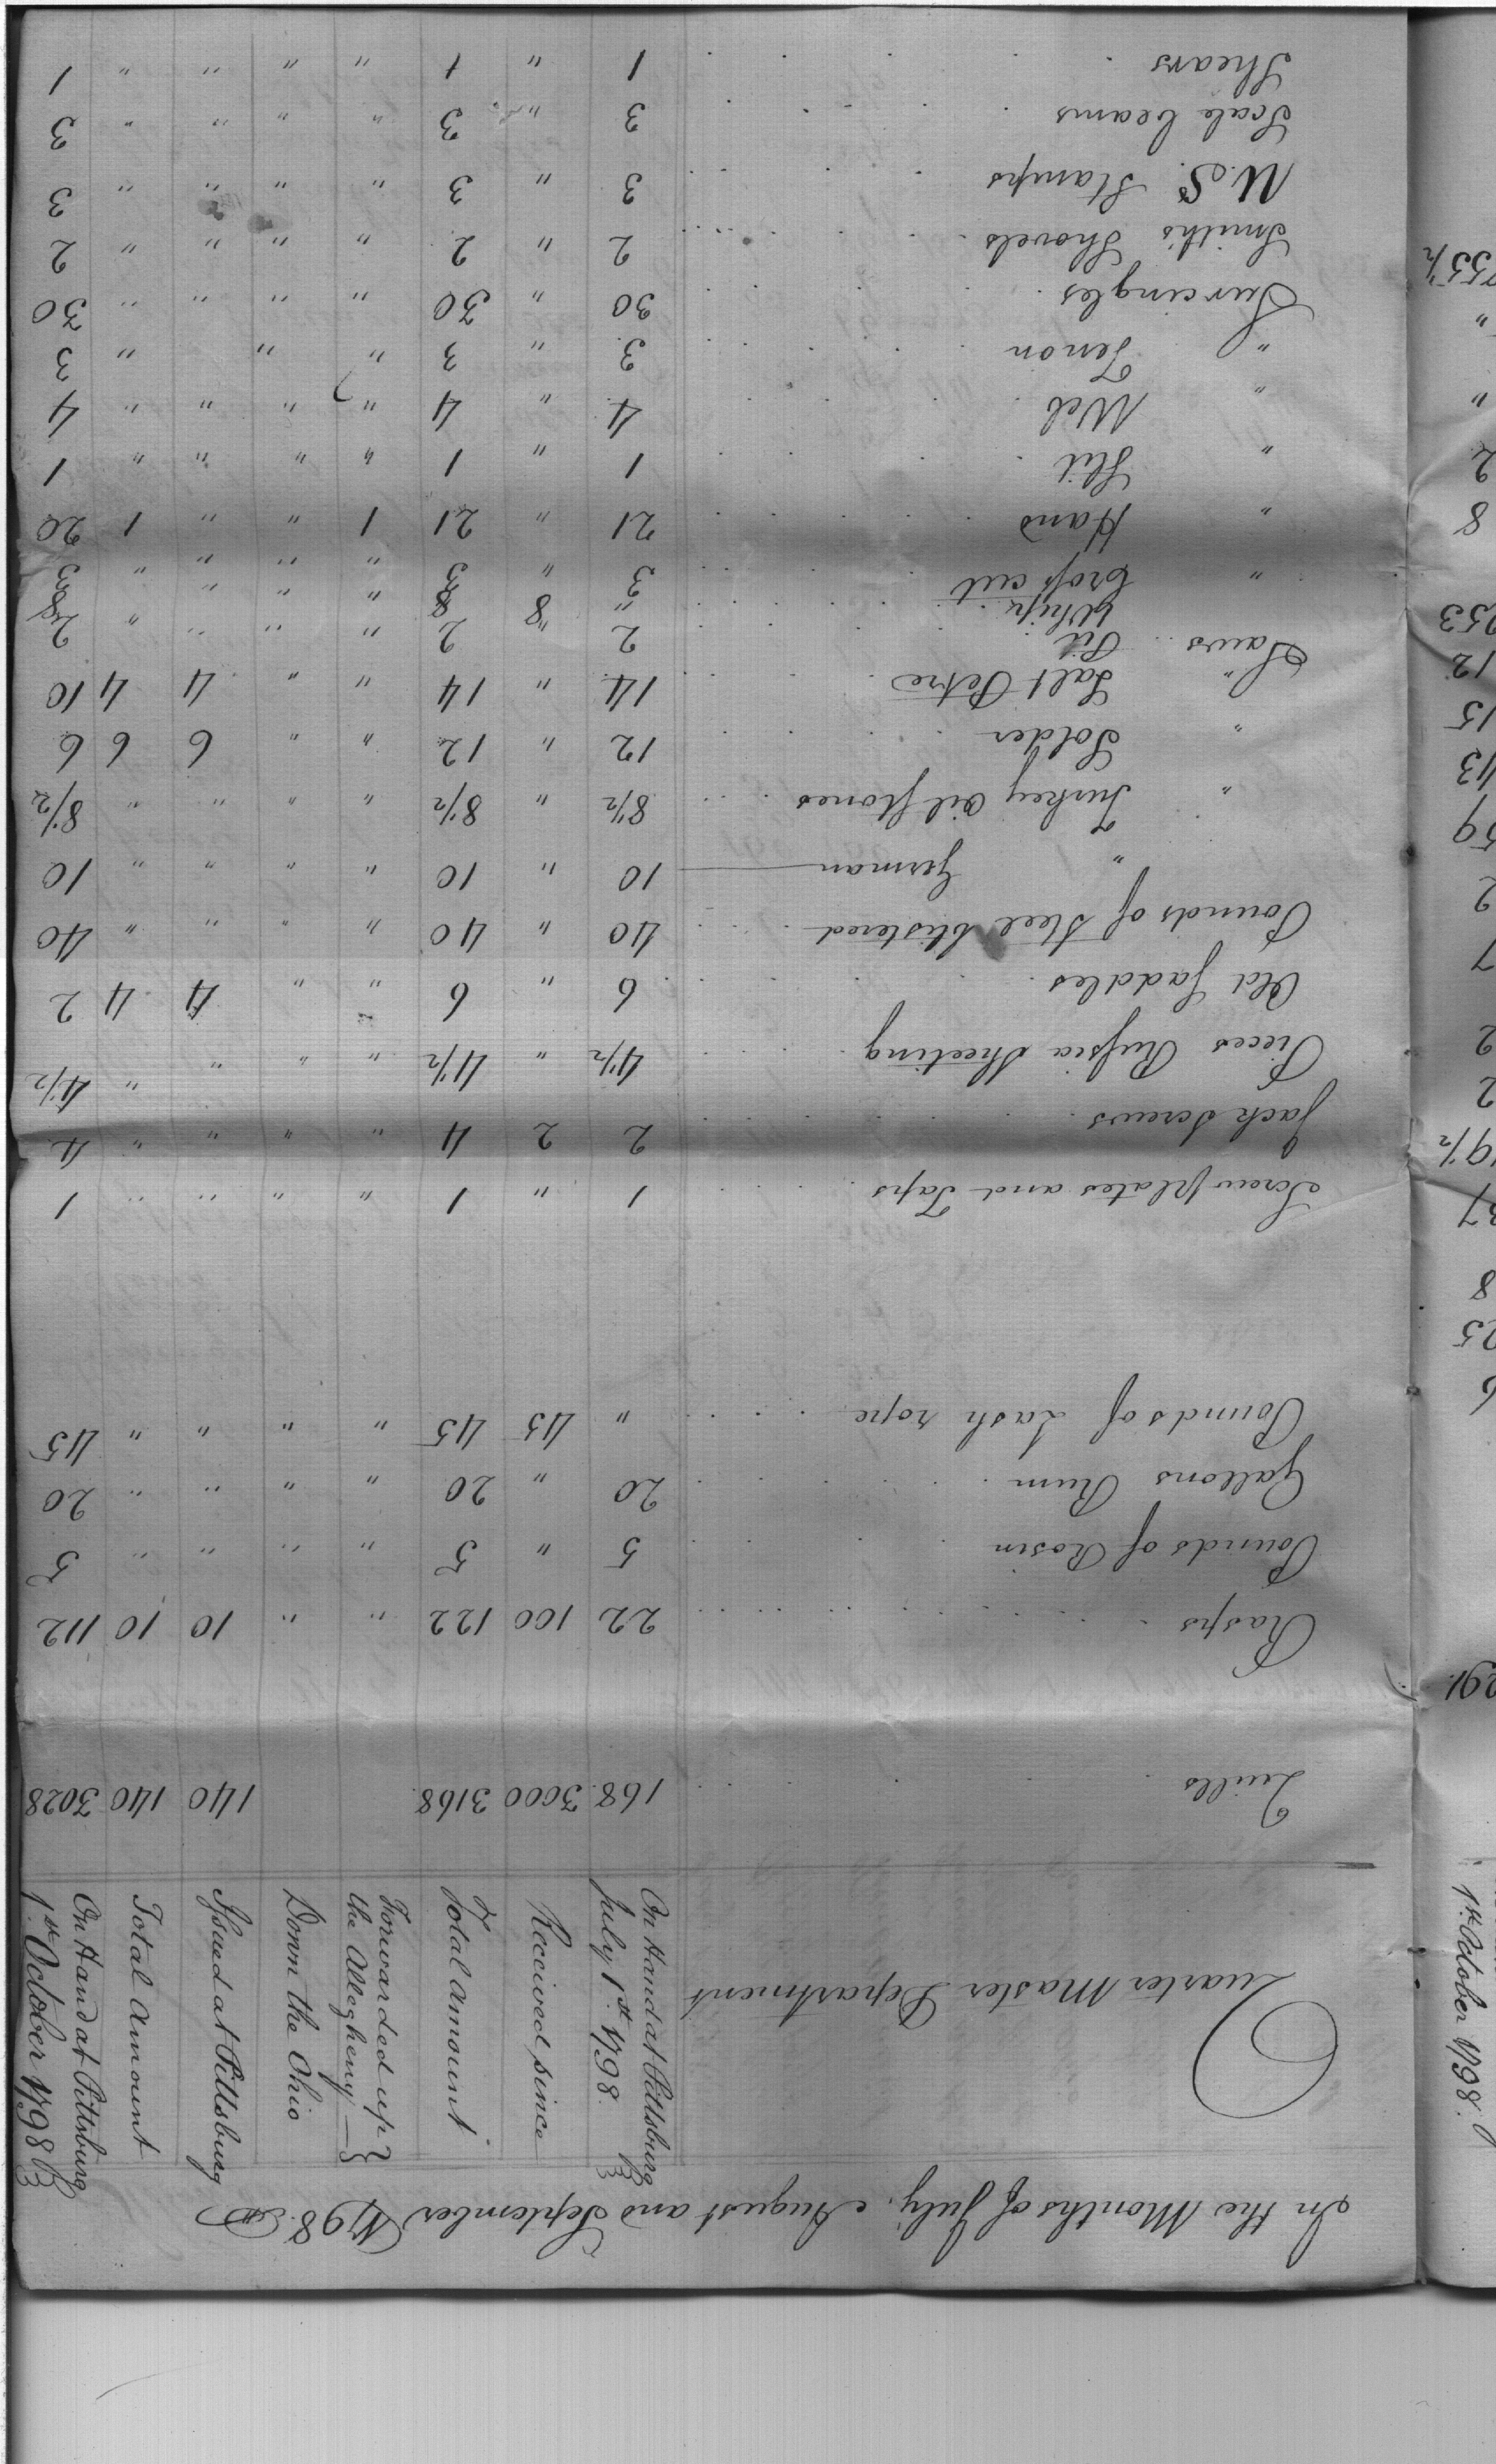 In the Months of July, August and September 1798.
Quarter Master Department
On Hand at Pittsburg July 1st. 1798. | Received since | Total Amount | Forwarded up the Allegheny — | Down the Ohio | Issued at Pittsburg | Total Amount | On Hand at Pittsburg 1st. October 1798
Quills 168. 3000 3168. 140 140 3028
Rasps 22 100 122 " " 10 10 112
Pounds of Rosin 5 " 5 " " " " 5
Gallons Rum 20 " 20 " " " " 20
Pounds of Lash rope " 45 45 " " " " 45
Screw plates and Taps 1 " 1 " " " " 1
Jack Screws 2 2 4 " " " " 4
Pieces Russia Sheeting 4½ " 4½ " " " " 4½
Old Saddles 6 " 6 " " 4 4 2
Pounds of Steel blistered 40 " 40 " " " " 40
" German 10 " 10 " " " " 10
" Turkey Oil stones 8½ " 8½ " " " " 8½
" Solder 12 " 12 " " 6 6 6
" Salt Petre 14 " 14 " " 4 4 10
Saws Pit 2 " 2 " " " " 2
Whip " 8 8 " " " 8
" Cross cut 3 " 3 " " " " 3
" Hand 21 " 21 1 " " 1 20
" Slit 1 " 1 " " " " 1
" Web 4 " 4 " " " " 4
" Tenon 3 " 3 " " " 3
Surcingles 30 " 30 " " " " 30
Smith's Shovels 2 " 2 " " " " 2
U.S. Stamps 3 " 3 " " " " 3
Scale beams 3 " 3 " " " " 3
Shears 1 " 1 " " " " 1
1st. October 1798.
291
6
25
8
37
19½
2
2
7
2
59
43
15
12
253
8
2
"
"
755½